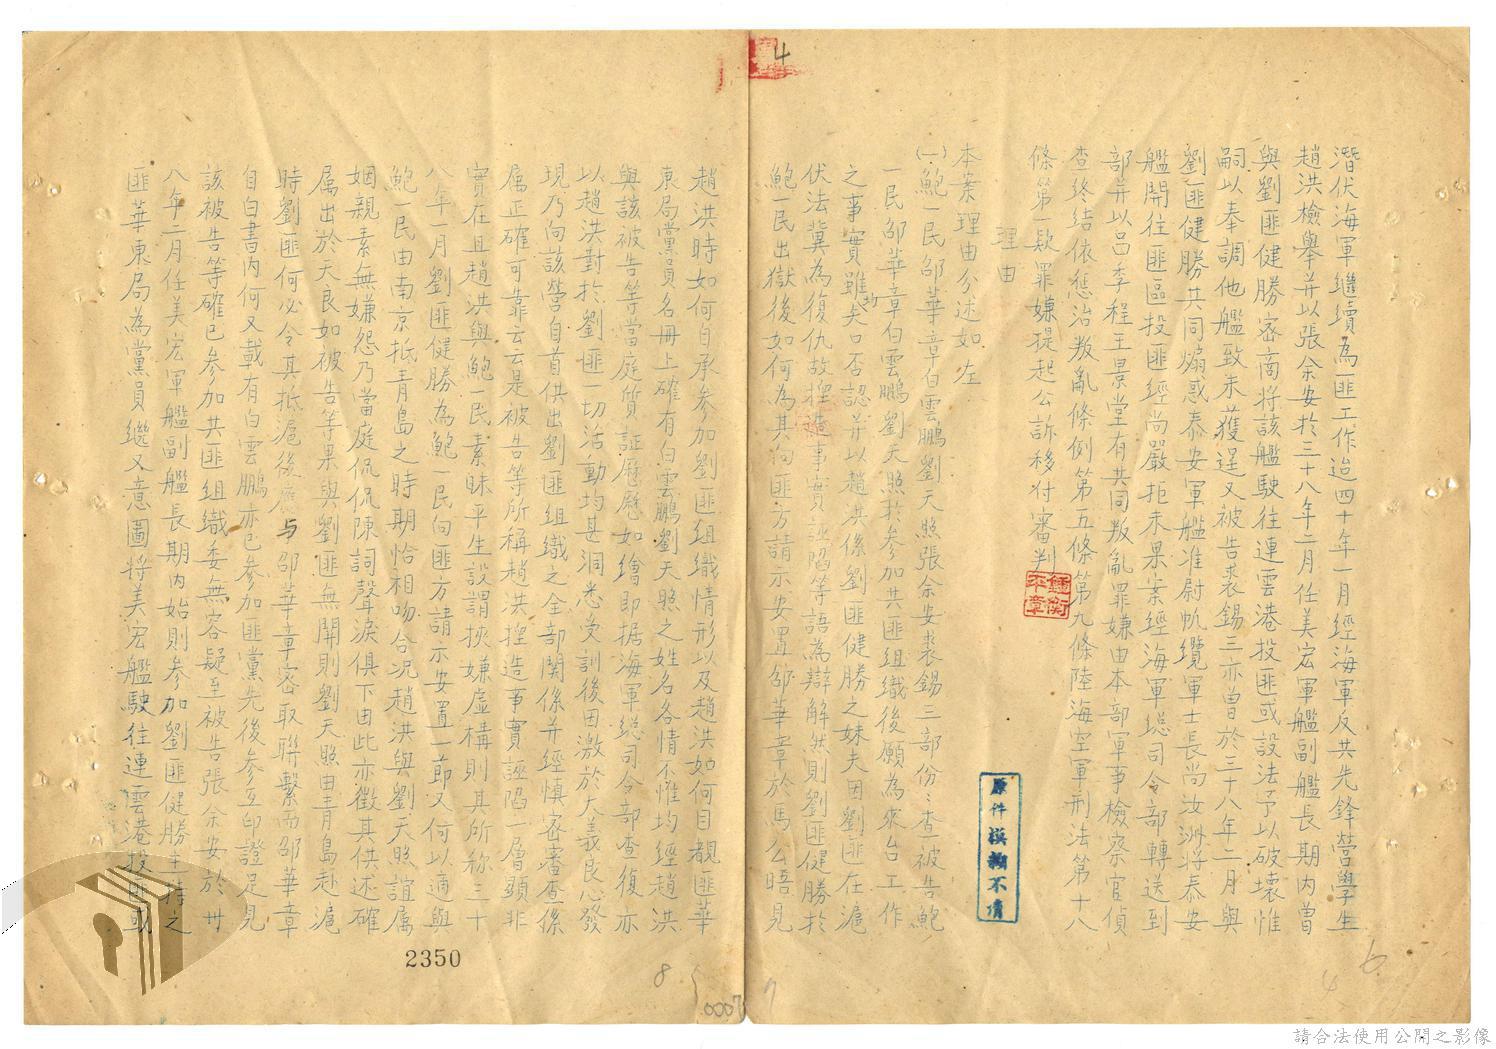 4
潛伏海軍繼續為匪工作迨四十年一月經海軍反共先鋒營學生
趙洪檢舉并以張余安於三十八年二月任美宏軍艦副艦長期內曾
與劉匪健勝密商將該艦駛往連雲港投匪或設法予以破壞惟
嗣以奉調他艦致未獲逞又被告裘錫三亦曾於三十八年二月與
劉匪健勝共同煽惑泰安軍艦准尉帆纜軍士長尚汝洲將泰安
艦開往匪區投匪經尚嚴拒未果案經海軍總司令部轉送到
部并以呂季程王景堂有共同叛亂罪嫌由本部軍事檢察官偵
查終結依懲治叛亂條例第五條第九條陸海空軍刑法第十八
條第一款罪嫌提起公訴移付審判
理由
本案理由分述如左
(一)鮑一民邵華章白雲鵬劉天照張余安裘錫三部份：查被告鮑
一民邵華章白雲鵬劉天照於參加共匪組織後願為來台工作
之事實雖均矢口否認并以趙洪係劉匪健勝之妹夫因劉匪在滬
伏法冀為復仇故捏造事實誣陷等語為辯解然則劉匪健勝於
鮑一民出獄後如何為其向匪方請示安置邵華章於馬公晤見
趙洪時如何自承參加劉匪組織情形以及趙洪如何目覩匪華
東局黨員名冊上確有白雲鵬劉天照之姓名各情不惟均經趙洪
與該被告等當庭質証歷歷如繪即据海軍總司令部查復亦
以趙洪對於劉匪一切活動均甚洞悉受訓後因激於大義良心發
現乃向該營自首供出劉匪組織之全部関係并經慎密審查係
属正確可靠云云是被告等所稱趙洪捏造事實誣陷一層顯非
實在且趙洪與鮑一民素昧平生設謂挾嫌虛構則其所称三十
八年一月劉匪健勝為鮑一民向匪方請示安置一節又何以適與
鮑一民由南京抵青島之時期恰相吻合況趙洪與劉天照誼属
姻親素無嫌怨乃當庭侃侃陳詞聲淚俱下由此亦徵其供述確
属出於天良如被告等果與劉匪無関則劉天照由青島赴滬
時劉匪何必令其抵滬後應与邵華章密取聯繫而邵華章
自白書內何又載有白雲鵬亦已參加匪黨先後參互印證足見
該被告等確已參加共匪組織委無容疑至被告張余安於卅
八年二月任美宏軍艦副艦長期內始則參加劉匪健勝主持之
匪華東局為黨員繼又意圖將美宏艦駛往連雲港投匪或
原件模糊不清
2350
8
0007
7
4
6
請合法使用公開之影像